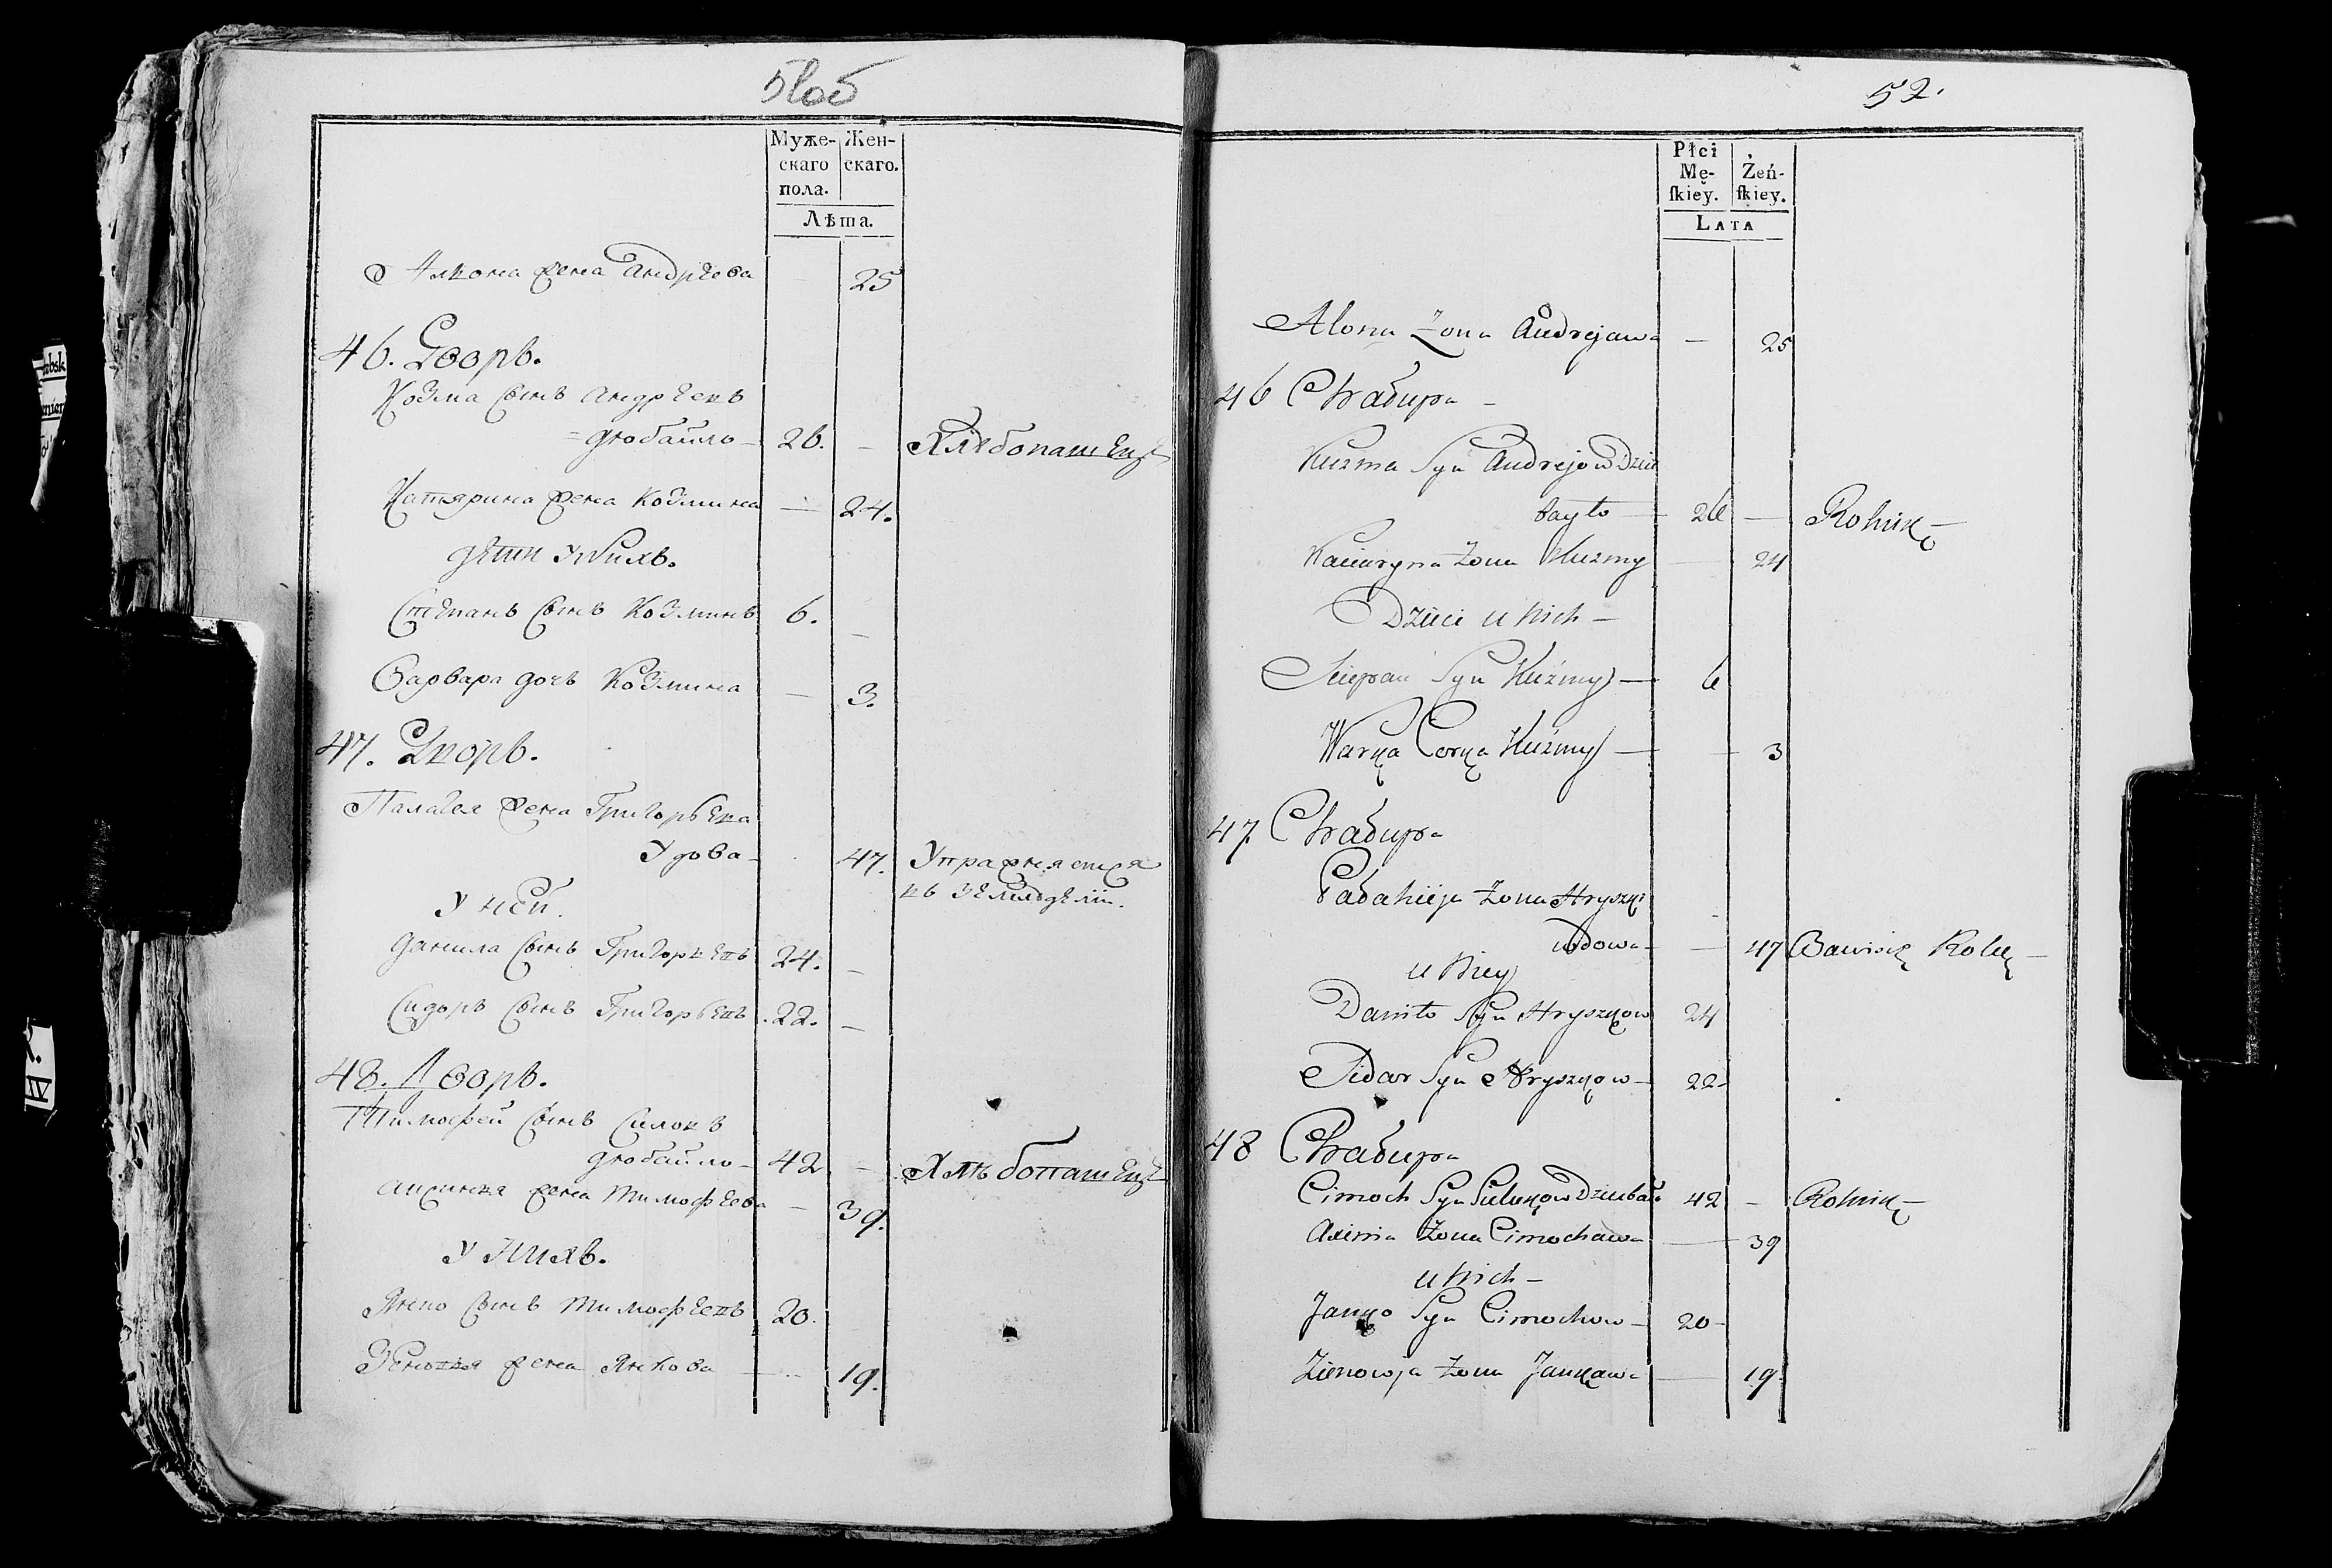 51об
Муже-
скаго
пола.
Жен-
скаго.
Лѣта.
Алиона жена Андрѣева — 25
46. Дворъ.
Козма сынъ Андрѣевъ
=дзюбайло — 26. — Хлѣбопашецъ
Катярина жена Козмина — 24.
дѣти у нихъ.
Стѣпанъ сынъ Козминъ 6. —
Варвара дочь Козмина — 3.
47. Дворъ.
Палагея жена Григорьева
удова — 47. Упражняется
въ земледѣліи.
у ней.
данила сынъ Григорьевъ 24. —
Сидоръ сынъ Григорьевъ 22. —
48. Дворъ.
Тимофей сынъ
дзюбайло — 42 — Хлѣбопашецъ
жена Тимофѣева — 39.
у нихъ.
Янко сынъ Тимофѣевъ 20.
Зеновья жена Янкова — 19.
52.
Płci
Mę-
ſkiey.
Żeń-
ſkiey.
LATA
Alona Żona Andrejawa — 25
46 Chałupa —
Kuzma Syn Andrejow Dziu
bayło — 26 — Rolnik —
Kaciaryna Żona Kuzmy — 24
Dzieci u nich —
Sciepan Syn Kuźmy — 6
Warka Corka Kuźmy — — 3
47 Chałupa
Żona Hryszki
wdowa — — 47 Bawisię Rolą —
u niey
Daniło Syn Hryszkow 24
Sidor Syn Hryszkow — 22 —
48 Chałupa
Cimoch Syn Dziubało 42 — Rolnik —
Axinia Żona Cimochawa — 39
u nich —
Janko Syn Cimochow — 20 —
Zienowja Żona Jankawa — 19.